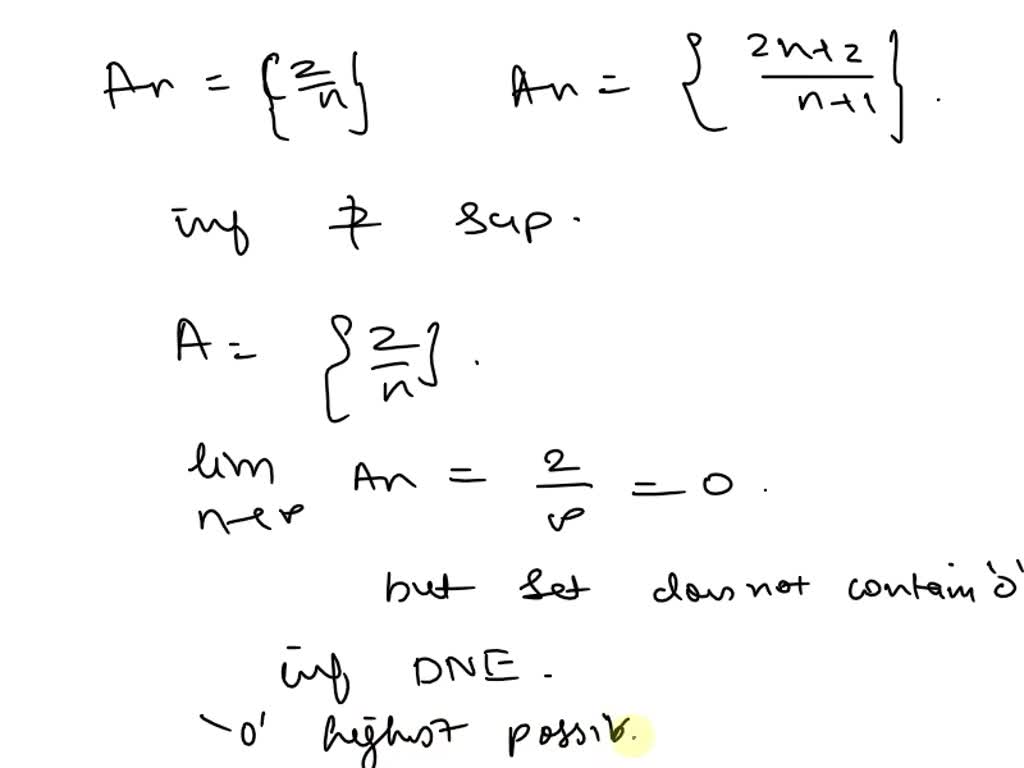 An = {2/n} An = {2n+2/n+1}.
inf ≠ sup.
A = {2/n}.
lim n→∞ An = 2/∞ = 0.
but set does not contain '0'
inf DNE.
'0' highest possib.